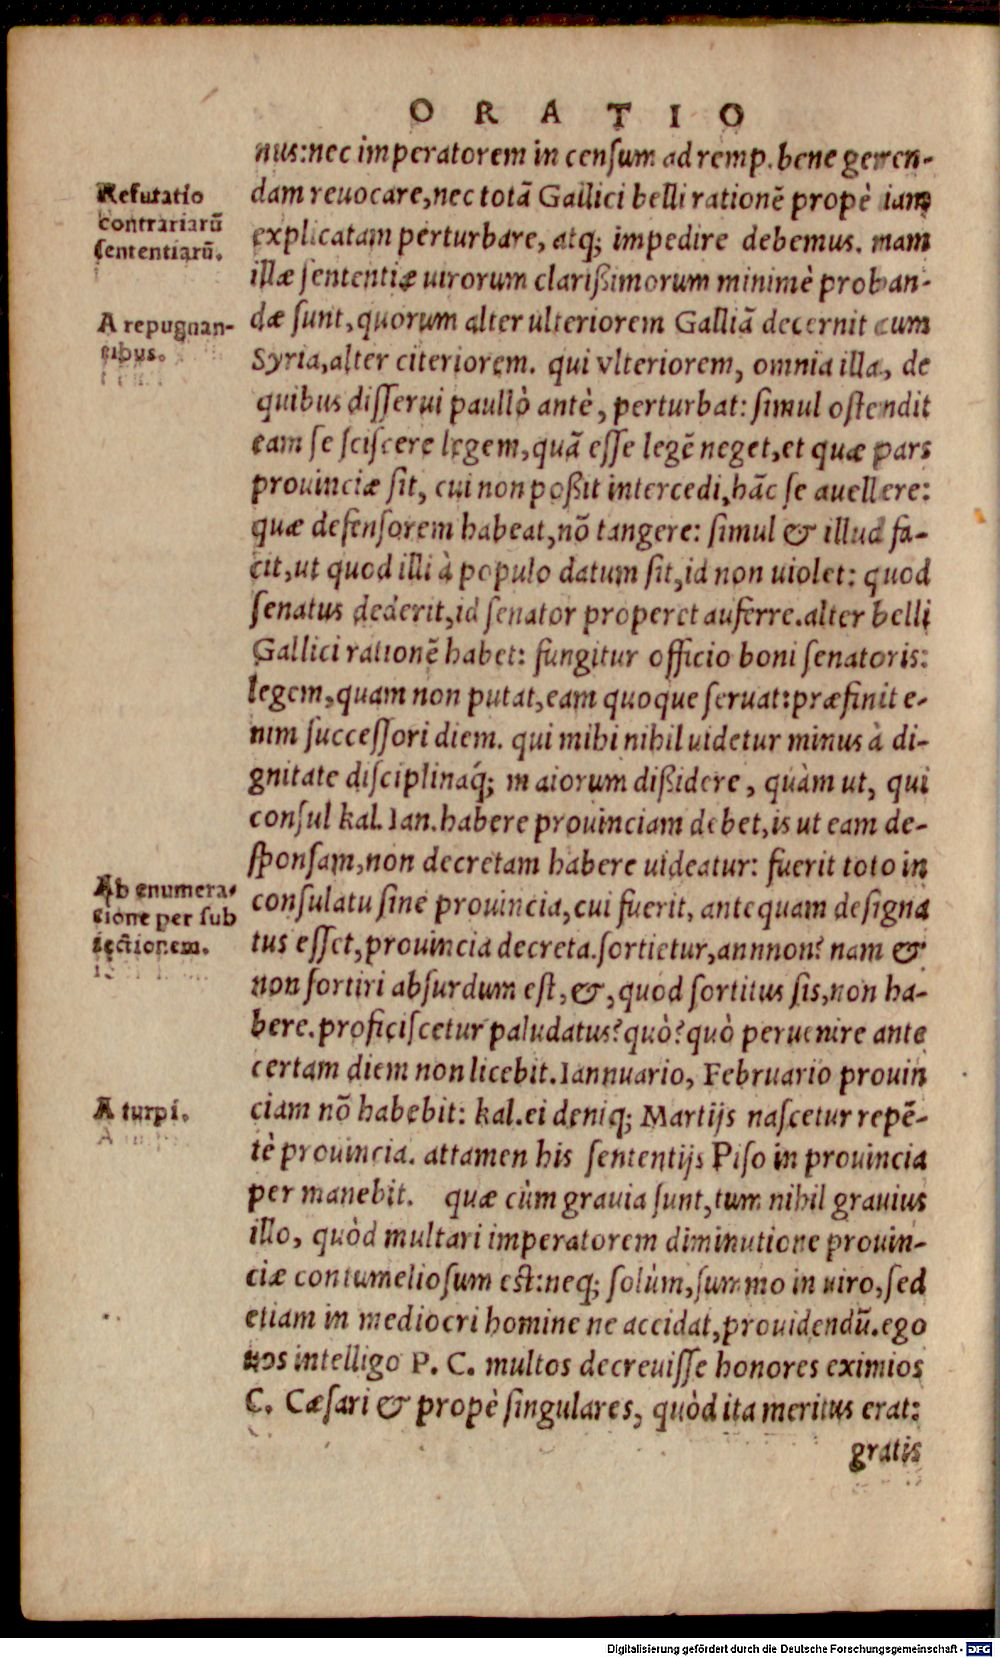 O R A T I O
nus: nec imperatorem in censum ad remp. bene geren-
Refutatio
contrariarũ
sententiarũ.
dam reuocare, nec totã Gallici belli rationẽ propè iam
explicatam perturbare, atq; impedire debemus. mam
illæ sententiæ uirorum clarißimorum minimè proban-
A repugnan-
tibus.
dæ sunt, quorum alter ulteriorem Galliã decernit cum
Syria, alter citeriorem. qui vlteriorem, omnia illa, de
quibus disserui paullò antè, perturbat: simul ostendit
eam se sciscere legem, quã esse legẽ neget, et quæ pars
prouinciæ sit, cui non poßit intercedi, hãc se auellere:
quæ defensorem habeat, nõ tangere: simul & illud fa-
cit, ut quod illi à populo datum sit, id non uiolet: quod
senatus dederit, id senator properet auferre. alter belli
Gallici rationẽ habet: fungitur officio boni senatoris:
legem, quam non putat, eam quoque seruat: præfinit e-
nim successori diem. qui mihi nihil uidetur minus à di-
gnitate disciplinaq́; maiorum dißidere, quàm ut, qui
consul kal. Ian. habere prouinciam debet, is ut eam de-
sponsam, non decretam habere uideatur: fuerit toto in
Ab enumera-
tione per sub
iectionem.
consulatu sine prouincia, cui fuerit, antequam designa
tus esset, prouincia decreta. sortietur, annnon? nam &
non sortiri absurdum est, &, quod sortitus sis, non ha-
bere. proficiscetur paludatus? quò? quò peruenire ante
certam diem non licebit. Iannuario, Februario prouin
A turpi.
ciam nõ habebit: kal. ei deniq; Martijs nascetur repẽ-
tè prouincia. attamen his sententijs Piso in prouincia
permanebit. quæ cùm grauia sunt, tum nihil grauius
illo, quòd multari imperatorem diminutione prouin-
ciæ contumeliosum est: neq; solùm, summo in uiro, sed
etiam in mediocri homine ne accidat, prouidendũ. ego
uos intelligo P. C. multos decreuisse honores eximios
C. Cæsari & propè singulares, quòd ita meritus erat:
gratis
Digitalisierung gefördert durch die Deutsche Forschungsgemeinschaft - DFG